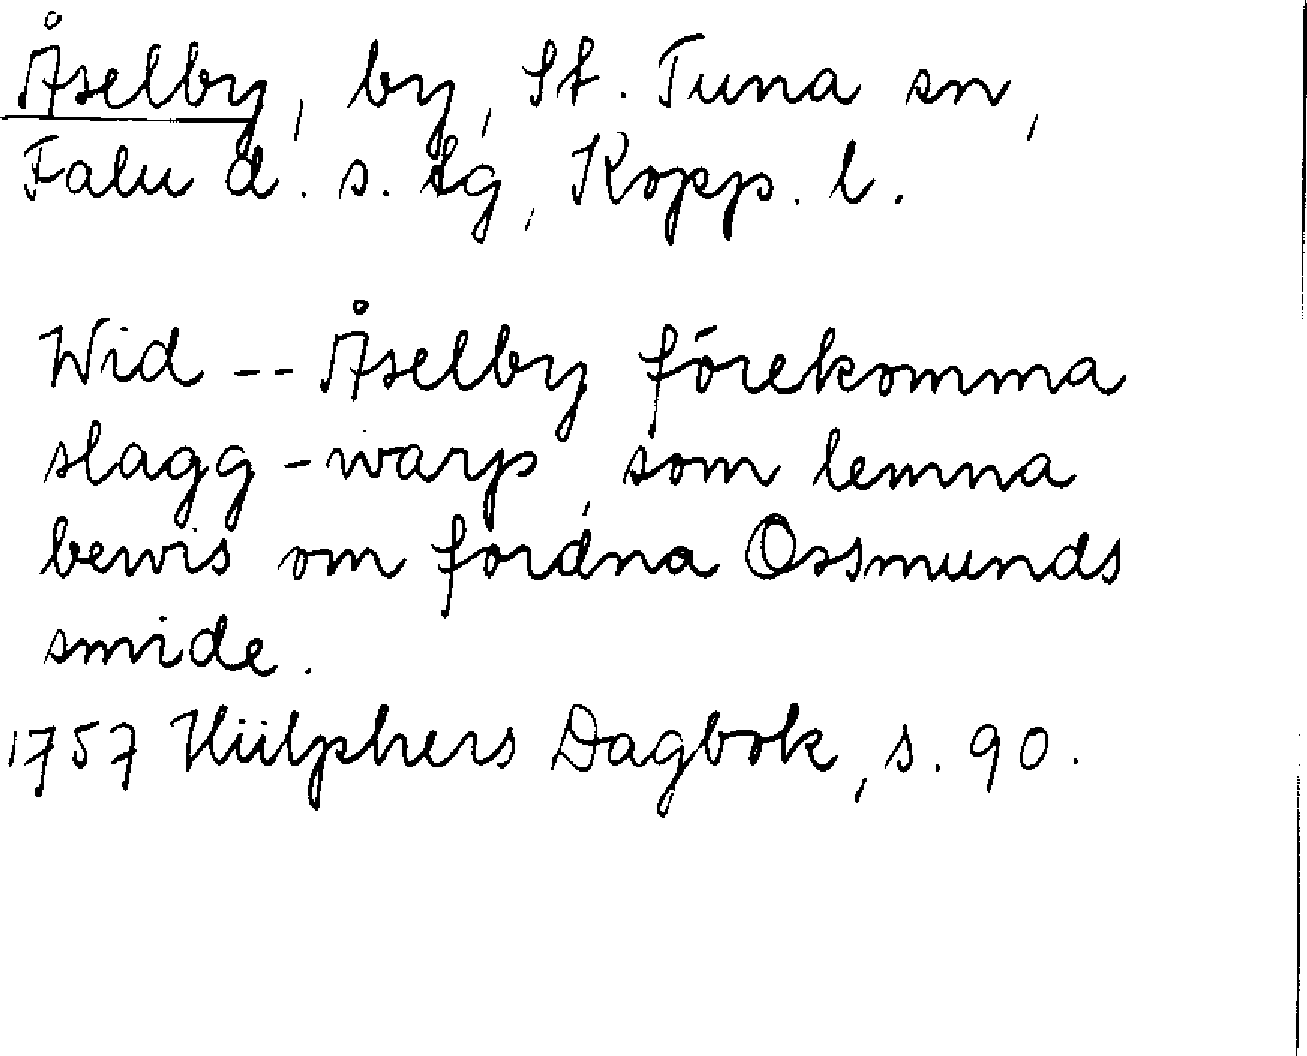 Åselby, by, St. Tuna sn,
Falu d. s. tg, Kopp. l.
Wid -- Åselby förekomma
slagg-warp, som lemna
bewis om fordna Ossmunds
smide.
1757 Hülphers Dagbok, s. 90.